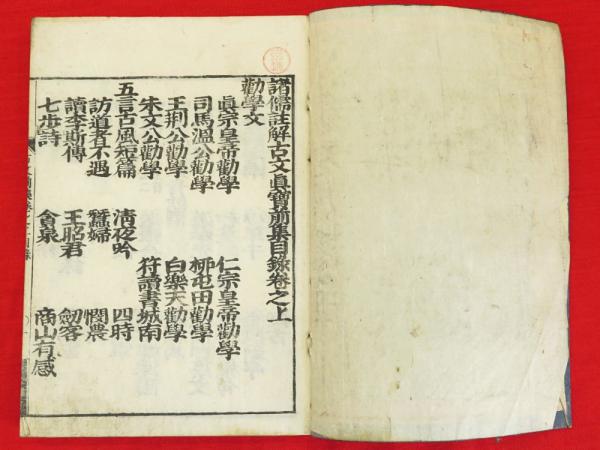 諸儒註解古文眞寶前集目錄卷之上
勸學文
眞宗皇帝勸學 仁宗皇帝勸學
司馬溫公勸學 柳屯田勸學
王荆公勸學 白樂天勸學
朱文公勸學 符讀書城南
五言古風短篇 清夜吟 四時
訪道者不遇 蠶婦 憫農
讀李斯傳 王昭君 劒客
七步詩 貪泉 商山有感